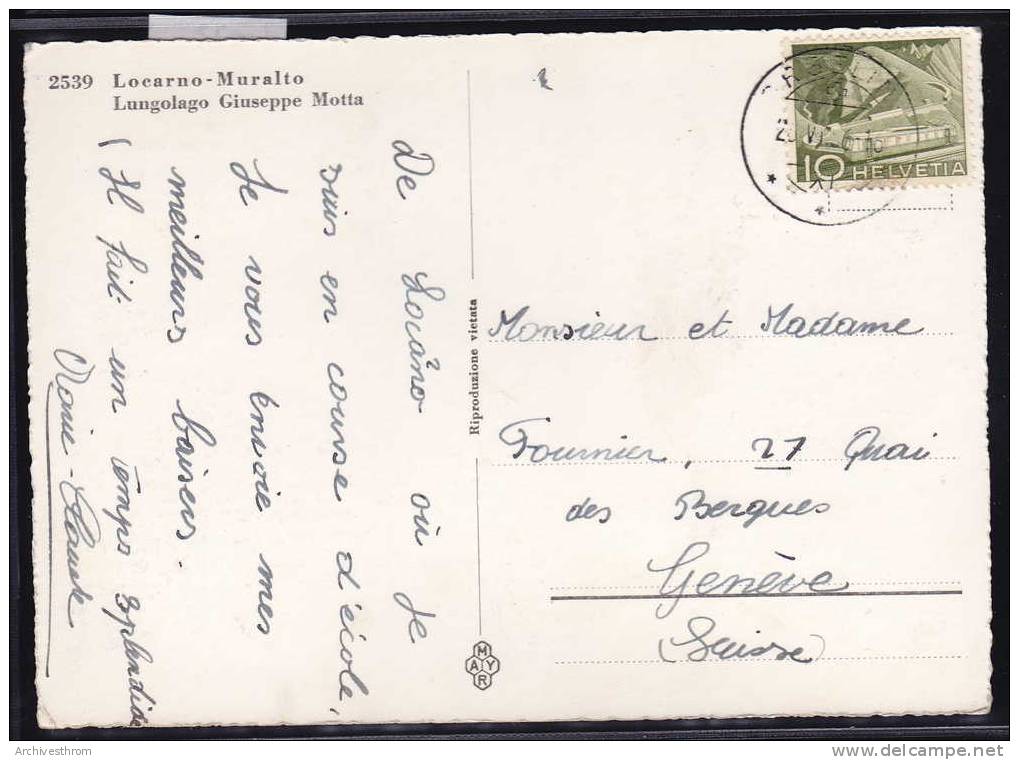 2539 Locarno-Muralto
Lungolago Giuseppe Motta
De Locarno où je
suis en course d'école,
Je vous envoie mes
meilleurs baisers.
(Il fait un temps splendide
Marie-Claude
Riproduzione vietata
MAYR
10 HELVETIA
Monsieur et Madame
Fournier, 27 Quai
des Bergues
Genève
(Suisse)
Archivesthrom
www.delcampe.net